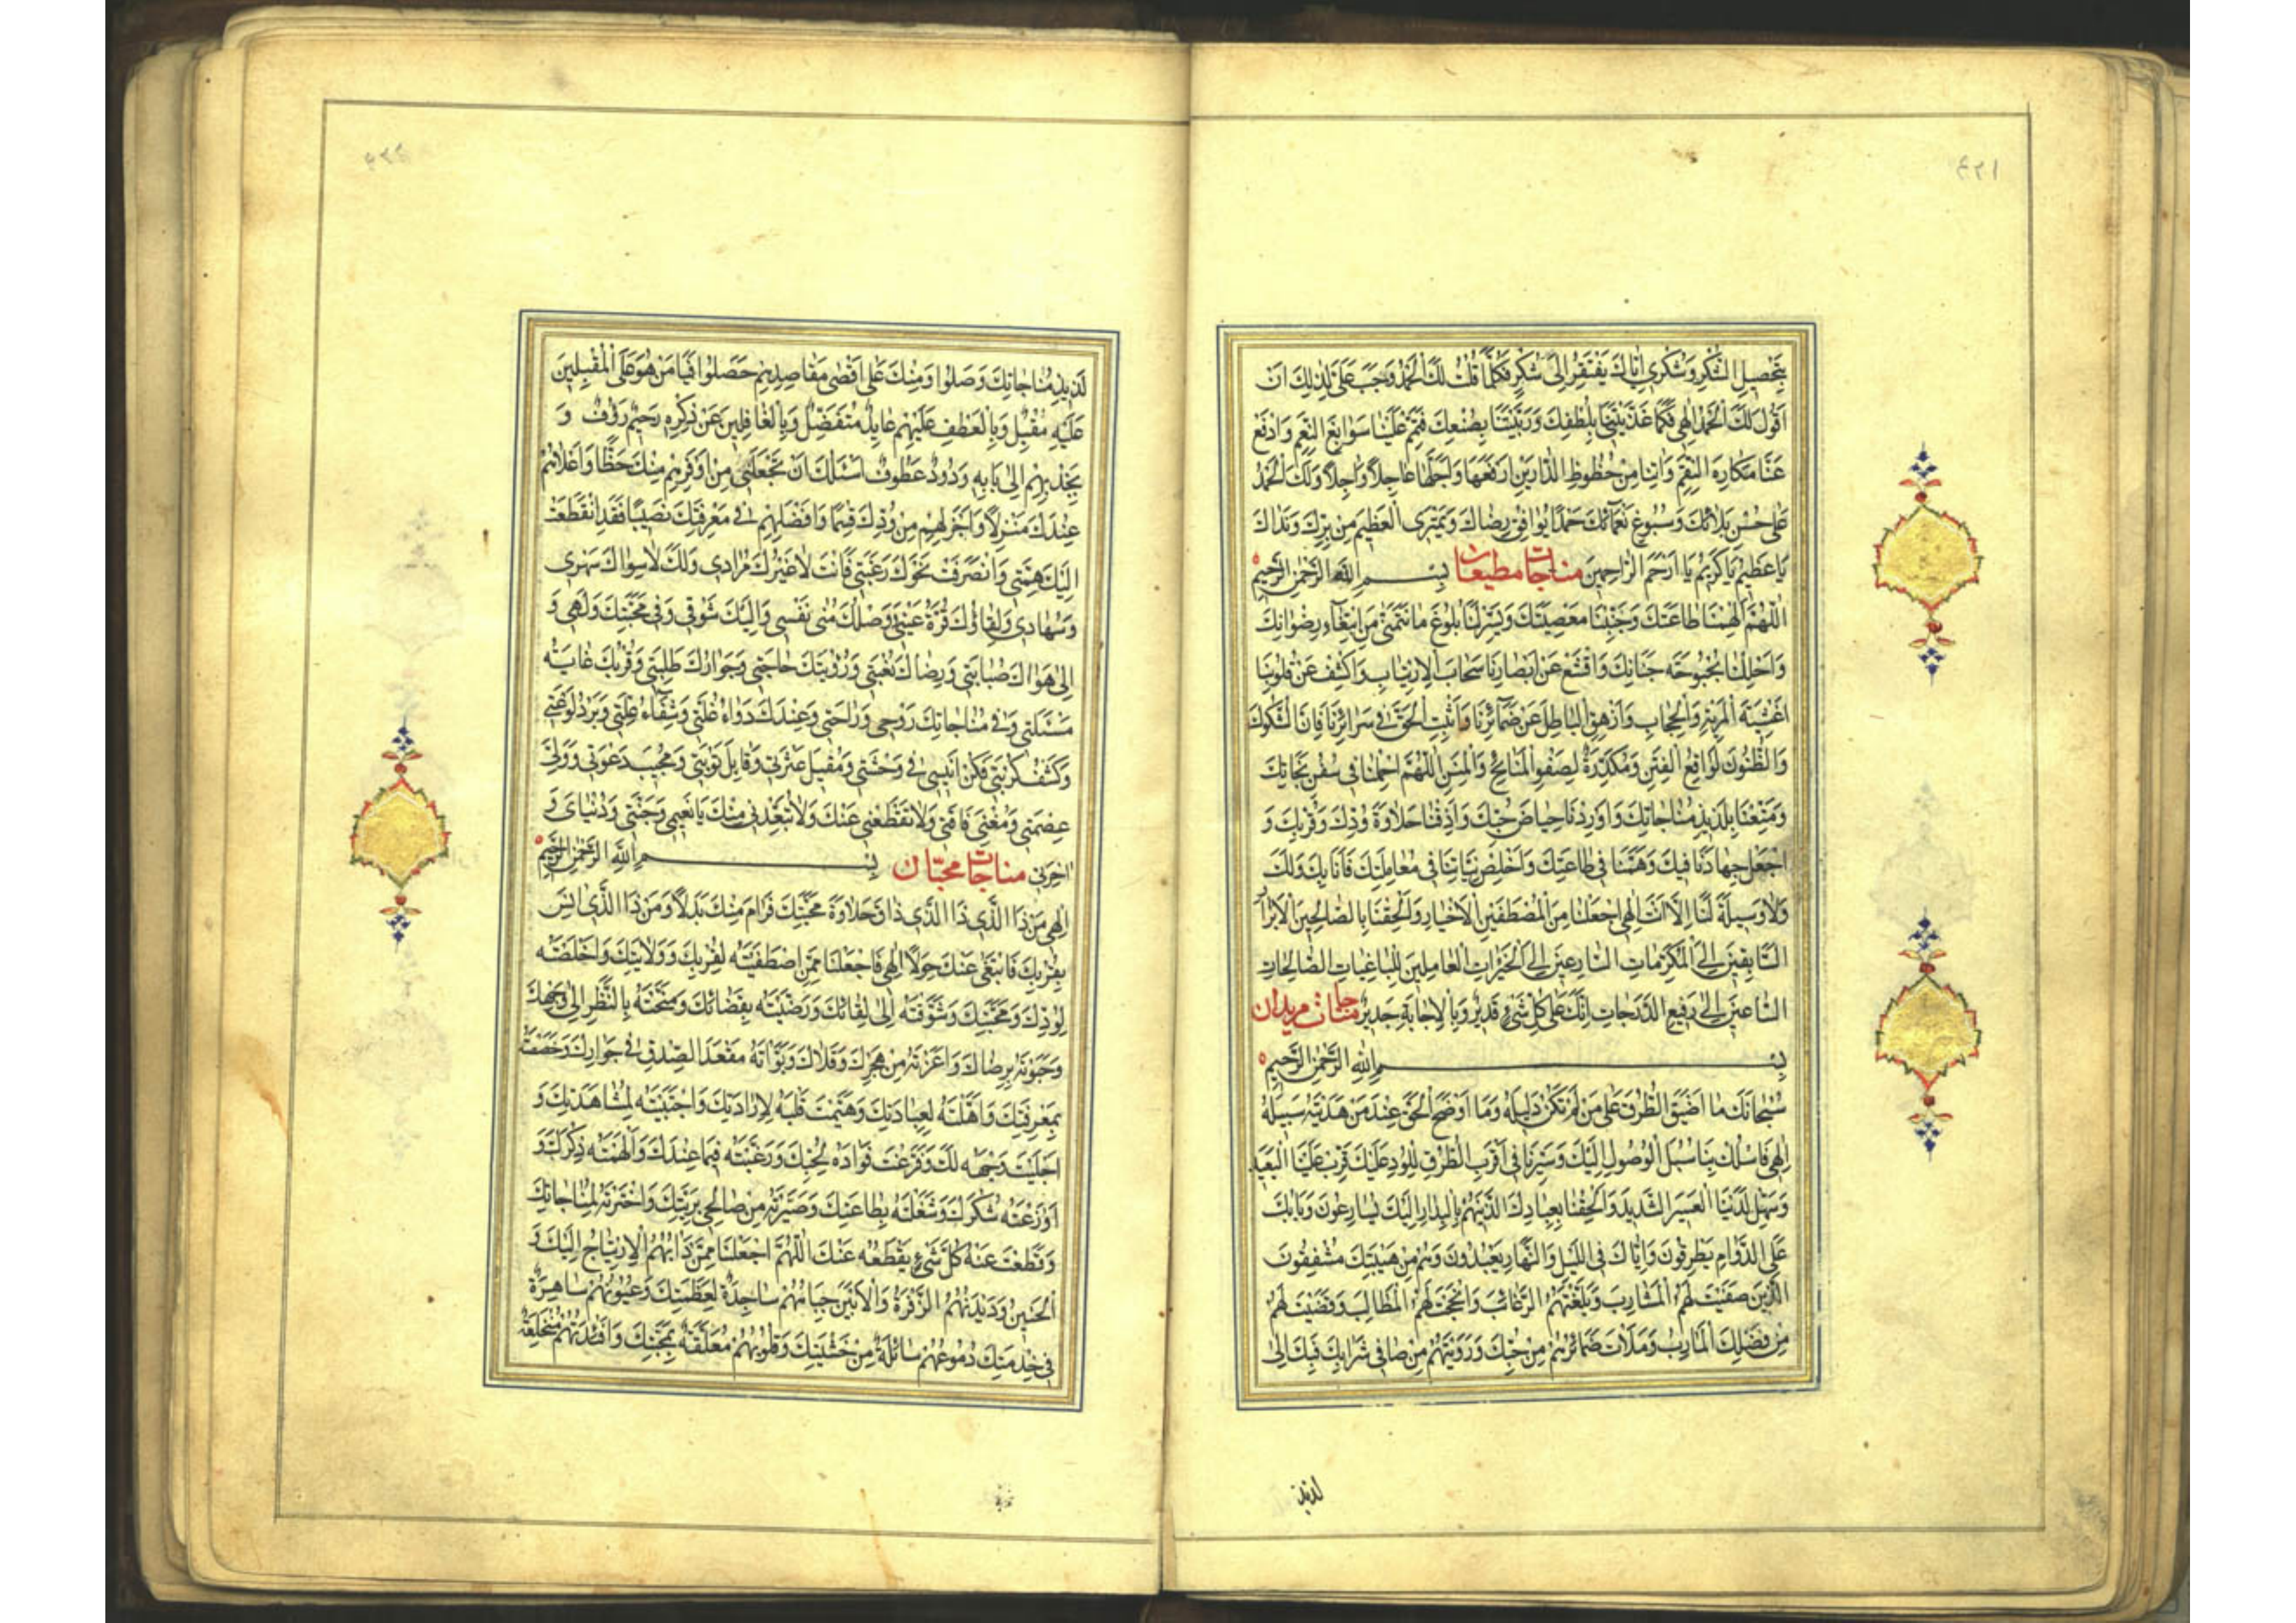 بِتَحْصِيلِ الشُّكْرِ وَشُكْرِي اِيَّاكَ يَفْتَقِرُ اِلَى شُكْرٍ فَكُلَّمَا قُلْتُ لَكَ الْحَمْدُ وَجَبَ عَلَيَّ لِذٰلِكَ اَنْ
اَقُولَ لَكَ الْحَمْدُ اِلٰهِي فَكَمَا غَذَّيْتَنَا بِلُطْفِكَ وَرَبَّيْتَنَا بِصُنْعِكَ فَتَمِّمْ عَلَيْنَا سَوَابِغَ النِّعَمِ وَادْفَعْ
عَنَّا مَكَارِهَ النِّقَمِ وَاٰتِنَا مِنْ حُظُوظِ الدَّارَيْنِ اَرْفَعَهَا وَاَجَلَّهَا عَاجِلًا وَاٰجِلًا وَلَكَ الْحَمْدُ
عَلَى حُسْنِ بَلَائِكَ وَسُبُوغِ نَعْمَائِكَ حَمْدًا يُوَافِقُ رِضَاكَ وَيَمْتَرِي الْعَظِيمَ مِنْ بِرِّكَ وَنَدَاكَ
يَا عَظِيمُ يَا كَرِيمُ يَا اَرْحَمَ الرَّاحِمِينَ مناجات مطیعان بِسْمِ اللهِ الرَّحْمٰنِ الرَّحِيمِ
اَللّٰهُمَّ اَلْهِمْنَا طَاعَتَكَ وَجَنِّبْنَا مَعْصِيَتَكَ وَيَسِّرْ لَنَا بُلُوغَ مَا نَتَمَنَّى مِنِ ابْتِغَاءِ رِضْوَانِكَ
وَاَحْلِلْنَا بُحْبُوحَةَ جِنَانِكَ وَاقْشَعْ عَنْ اَبْصَارِنَا سَحَابَ الْاِرْتِيَابِ وَاكْشِفْ عَنْ قُلُوبِنَا
اَغْشِيَةَ الْمِرْيَةِ وَالْحِجَابِ وَاَزْهِقِ الْبَاطِلَ عَنْ ضَمَائِرِنَا وَاَثْبِتِ الْحَقَّ فِي سَرَائِرِنَا فَاِنَّ الشُّكُوكَ
وَالظُّنُونَ لَوَاقِحُ الْفِتَنِ وَمُكَدِّرَةٌ لِصَفْوِ الْمَنَائِحِ وَالْمِنَنِ اَللّٰهُمَّ احْمِلْنَا فِي سُفُنِ نَجَاتِكَ
وَمَتِّعْنَا بِلَذِيذِ مُنَاجَاتِكَ وَاَوْرِدْنَا حِيَاضَ حُبِّكَ وَاَذِقْنَا حَلَاوَةَ وُدِّكَ وَقُرْبِكَ وَ
اجْعَلْ جِهَادَنَا فِيكَ وَهَمَّنَا فِي طَاعَتِكَ وَاَخْلِصْ نِيَّاتِنَا فِي مُعَامَلَتِكَ فَاِنَّا بِكَ وَلَكَ
وَلَا وَسِيلَةَ لَنَا اِلَّا اَنْتَ اِلٰهِي اجْعَلْنَا مِنَ الْمُصْطَفَيْنَ الْاَخْيَارِ وَاَلْحِقْنَا بِالصَّالِحِينَ الْاَبْرَارِ
السَّابِقِينَ اِلَى الْمَكْرُمَاتِ الْمُسَارِعِينَ اِلَى الْخَيْرَاتِ الْعَامِلِينَ لِلْبَاقِيَاتِ الصَّالِحَاتِ
السَّاعِينَ اِلَى رَفِيعِ الدَّرَجَاتِ اِنَّكَ عَلَى كُلِّ شَيْءٍ قَدِيرٌ وَبِالْاِجَابَةِ جَدِيرٌ مناجات مریدان
بِسْمِ اللهِ الرَّحْمٰنِ الرَّحِيمِ
سُبْحَانَكَ مَا اَضْيَقَ الطُّرُقَ عَلَى مَنْ لَمْ تَكُنْ دَلِيلَهُ وَمَا اَوْضَحَ الْحَقَّ عِنْدَ مَنْ هَدَيْتَهُ سَبِيلَهُ
اِلٰهِي فَاسْلُكْ بِنَا سُبُلَ الْوُصُولِ اِلَيْكَ وَسَيِّرْنَا فِي اَقْرَبِ الطُّرُقِ لِلْوُفُودِ عَلَيْكَ قَرِّبْ عَلَيْنَا الْبَعِيدَ
وَسَهِّلْ لَدَيْنَا الْعَسِيرَ الشَّدِيدَ وَاَلْحِقْنَا بِعِبَادِكَ الَّذِينَ هُمْ بِالْبِدَارِ اِلَيْكَ يُسَارِعُونَ وَبَابَكَ
عَلَى الدَّوَامِ يَطْرُقُونَ وَاِيَّاكَ فِي اللَّيْلِ وَالنَّهَارِ يَعْبُدُونَ وَهُمْ مِنْ هَيْبَتِكَ مُشْفِقُونَ
الَّذِينَ صَفَّيْتَ لَهُمُ الْمَشَارِبَ وَبَلَّغْتَهُمُ الرَّغَائِبَ وَاَنْجَحْتَ لَهُمُ الْمَطَالِبَ وَقَضَيْتَ لَهُمْ
مِنْ فَضْلِكَ الْمَاٰرِبَ وَمَلَأْتَ ضَمَائِرَهُمْ مِنْ حُبِّكَ وَرَوَّيْتَهُمْ مِنْ صَافِي شَرَابِكَ فَبِكَ اِلَى
لذیذ
لَذِيذِ مُنَاجَاتِكَ وَصَلُوا وَمِنْكَ عَلَى اَقْصَى مَقَاصِدِهِمْ حَصَلُوا فَيَا مَنْ هُوَ عَلَى الْمُقْبِلِينَ
عَلَيْهِ مُقْبِلٌ وَبِالْعَطْفِ عَلَيْهِمْ عَائِدٌ مُتَفَضِّلٌ وَبِالْغَافِلِينَ عَنْ ذِكْرِهِ رَحِيمٌ رَؤُفٌ وَ
بِجَذْبِهِمْ اِلَى بَابِهِ وَدُودٌ عَطُوفٌ اَسْئَلُكَ اَنْ تَجْعَلَنِي مِنْ اَوْفَرِهِمْ مِنْكَ حَظًّا وَاَعْلَاهُمْ
عِنْدَكَ مَنْزِلًا وَاَجْزَلِهِمْ مِنْ وُدِّكَ قِسْمًا وَاَفْضَلِهِمْ فِي مَعْرِفَتِكَ نَصِيبًا فَقَدِ انْقَطَعَتْ
اِلَيْكَ هِمَّتِي وَانْصَرَفَتْ نَحْوَكَ رَغْبَتِي فَاَنْتَ لَا غَيْرُكَ مُرَادِي وَلَكَ لَا سِوَاكَ سَهَرِي
وَسُهَادِي وَلِقَاؤُكَ قُرَّةُ عَيْنِي وَوَصْلُكَ مُنَى نَفْسِي وَاِلَيْكَ شَوْقِي وَفِي مَحَبَّتِكَ وَلَهِي وَ
اِلَى هَوَاكَ صَبَابَتِي وَرِضَاكَ بُغْيَتِي وَرُؤْيَتُكَ حَاجَتِي وَجِوَارُكَ طَلِبَتِي وَقُرْبُكَ غَايَةُ
مَسْئَلَتِي وَفِي مُنَاجَاتِكَ رَوْحِي وَرَاحَتِي وَعِنْدَكَ دَوَاءُ عِلَّتِي وَشِفَاءُ غُلَّتِي وَبَرْدُ لَوْعَتِي
وَكَشْفُ كُرْبَتِي فَكُنْ اَنِيسِي فِي وَحْشَتِي وَمُقِيلَ عَثْرَتِي وَقَابِلَ تَوْبَتِي وَمُجِيبَ دَعْوَتِي وَوَلِيَّ
عِصْمَتِي وَمُغْنِيَ فَاقَتِي وَلَا تَقْطَعْنِي عَنْكَ وَلَا تُبْعِدْنِي مِنْكَ يَا نَعِيمِي وَجَنَّتِي وَدُنْيَايَ وَ
اٰخِرَتِي مناجات محبّان بِسْمِ اللهِ الرَّحْمٰنِ الرَّحِيمِ
اِلٰهِي مَنْ ذَا الَّذِي ذَا الَّذِي ذَاقَ حَلَاوَةَ مَحَبَّتِكَ فَرَامَ مِنْكَ بَدَلًا وَمَنْ ذَا الَّذِي اَنِسَ
بِقُرْبِكَ فَابْتَغَى عَنْكَ حِوَلًا اِلٰهِي فَاجْعَلْنَا مِمَّنِ اصْطَفَيْتَهُ لِقُرْبِكَ وَوَلَايَتِكَ وَاَخْلَصْتَهُ
لِوُدِّكَ وَمَحَبَّتِكَ وَشَوَّقْتَهُ اِلَى لِقَائِكَ وَرَضَّيْتَهُ بِقَضَائِكَ وَمَنَحْتَهُ بِالنَّظَرِ اِلَى وَجْهِكَ
وَحَبَوْتَهُ بِرِضَاكَ وَاَعَذْتَهُ مِنْ هَجْرِكَ وَقِلَاكَ وَبَوَّأْتَهُ مَقْعَدَ الصِّدْقِ فِي جِوَارِكَ وَخَصَصْتَهُ
بِمَعْرِفَتِكَ وَاَهَّلْتَهُ لِعِبَادَتِكَ وَهَيَّمْتَ قَلْبَهُ لِاِرَادَتِكَ وَاجْتَبَيْتَهُ لِمُشَاهَدَتِكَ وَ
اَخْلَيْتَ وَجْهَهُ لَكَ وَفَرَّغْتَ فُوَادَهُ لِحُبِّكَ وَرَغَّبْتَهُ فِيمَا عِنْدَكَ وَاَلْهَمْتَهُ ذِكْرَكَ وَ
اَوْزَعْتَهُ شُكْرَكَ وَشَغَلْتَهُ بِطَاعَتِكَ وَصَيَّرْتَهُ مِنْ صَالِحِي بَرِيَّتِكَ وَاخْتَرْتَهُ لِمُنَاجَاتِكَ
وَقَطَعْتَ عَنْهُ كُلَّ شَيْءٍ يَقْطَعُهُ عَنْكَ اَللّٰهُمَّ اجْعَلْنَا مِمَّنْ دَاْبُهُمُ الْاِرْتِيَاحُ اِلَيْكَ وَ
الْحَنِينُ وَدَيْدَنُهُمُ الزَّفْرَةُ وَالْاَنِينُ جِبَاهُهُمْ سَاجِدَةٌ لِعَظَمَتِكَ وَعُيُونُهُمْ سَاهِرَةٌ
فِي خِدْمَتِكَ دُمُوعُهُمْ سَائِلَةٌ مِنْ خَشْيَتِكَ وَقُلُوبُهُمْ مُعَلَّقَةٌ بِمَحَبَّتِكَ وَاَفْئِدَتُهُمْ مُنْخَلِعَةٌ